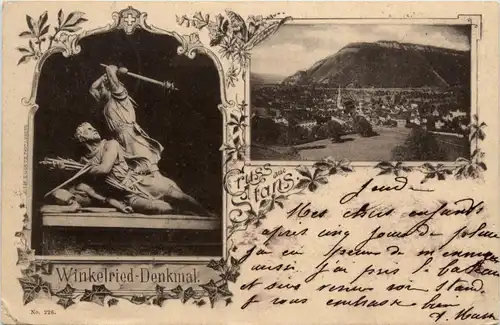 Gruss aus
Stans.
Jeudi
Mes chers enfants
après cinq jours de pluie
j'ai eu
aussi j'ai pris le bateau
et suis venue voir Stans
Je vous embrasse bien
Winkelried-Denkmal.
No. 226.